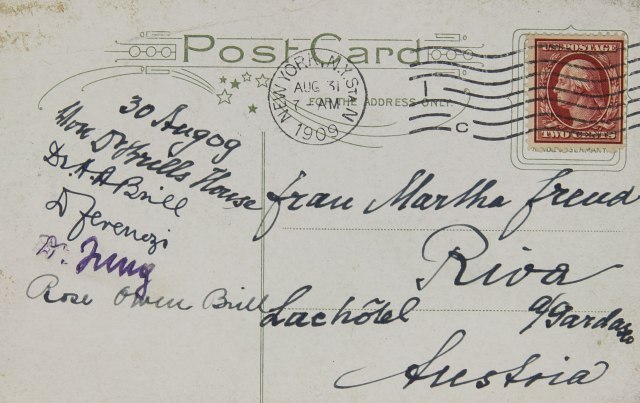 Post Card
NEW YORK, N.Y. STA. N
AUG 31
7 AM
1909
FOR THE ADDRESS ONLY.
U.S. POSTAGE
TWO CENTS
C
30 Aug 09
Dr Brills House
Dr. A. A Brill
D Ferenczi
Dr. Jung
Rose Owen Brill
Frau Martha Freud
Riva
Lachôtel
a/Gardasee
Austria